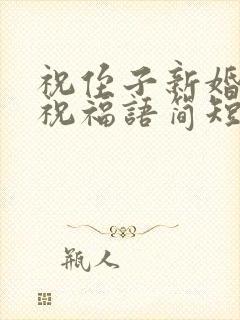 祝侄子新婚
祝福語简短
瓶人